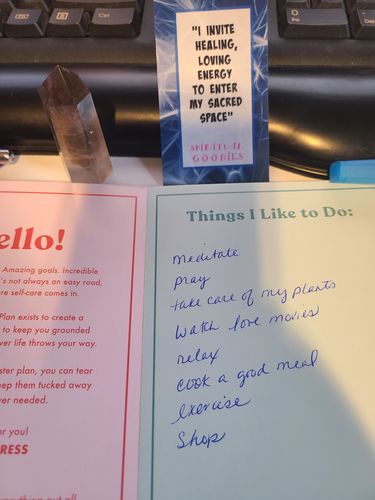 Ctrl
Fn
Ctrl
"I INVITE
HEALING,
LOVING
ENERGY
TO ENTER
MY SACRED
SPACE"
SPIRITUAL
GOODIES
ello!
Amazing goals. Incredible
's not always an easy road,
re self-care comes in.
Plan exists to create a
to keep you grounded
ver life throws your way.
ster plan, you can tear
eep them tucked away
ver needed.
or you!
RESS
Things I Like to Do:
meditate
pray
take care of my plants
watch love movies
relax
cook a good meal
exercise
Shop